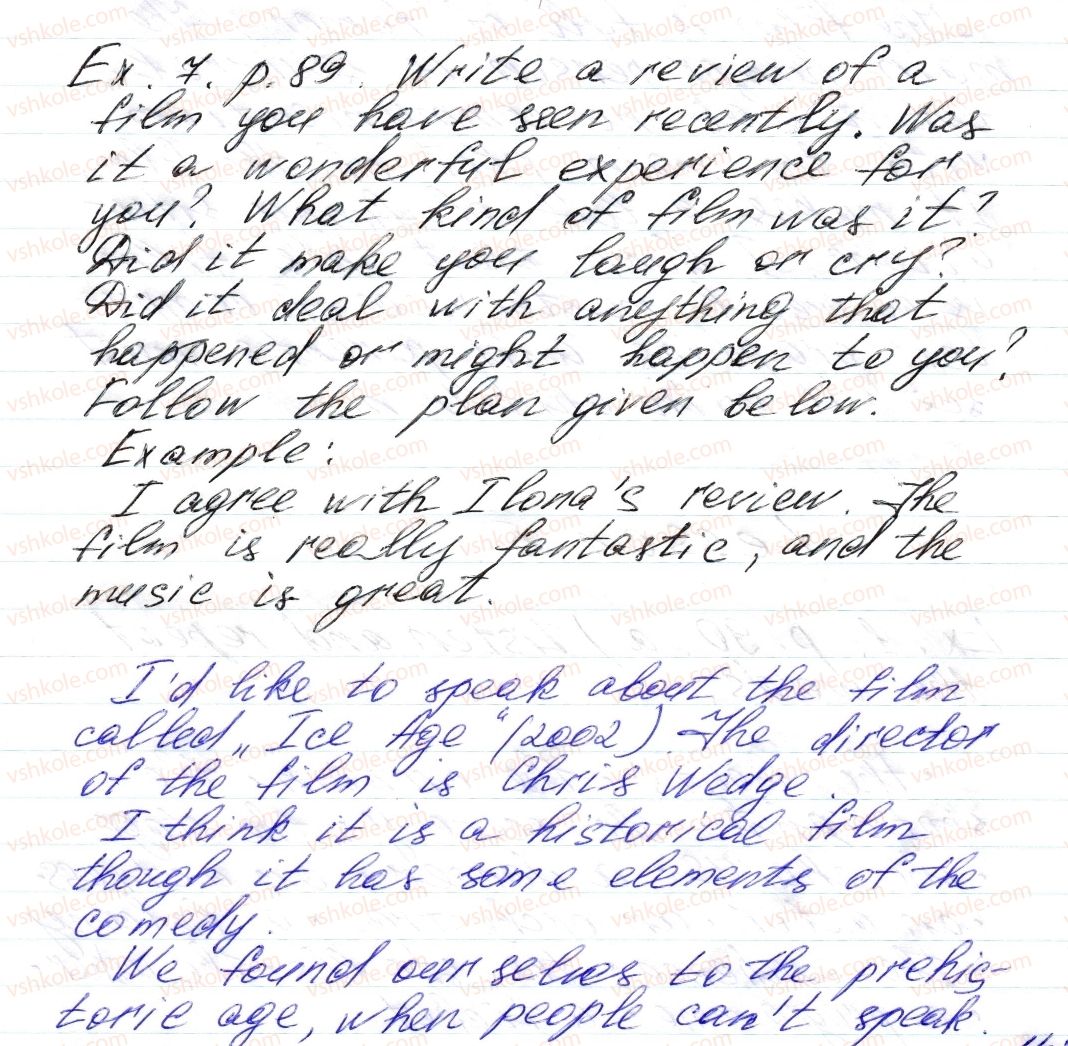 Ex. 7. p. 89. Write a review of a
film you have seen recently. Was
it a wonderful experience for
you? What kind of film was it?
Did it make you laugh or cry?
Did it deal with anything that
happened or might happen to you?
Follow the plan given below.
Example:
I agree with Ilona's review. The
film is really fantastic, and the
music is great.
I'd like to speak about the film
called „Ice Age“ (2002). The director
of the film is Chris Wedge.
I think it is a historical film
though it has some elements of the
comedy.
We found ourselves to the prehis-
toric age, when people can't speak.
vshkole.com